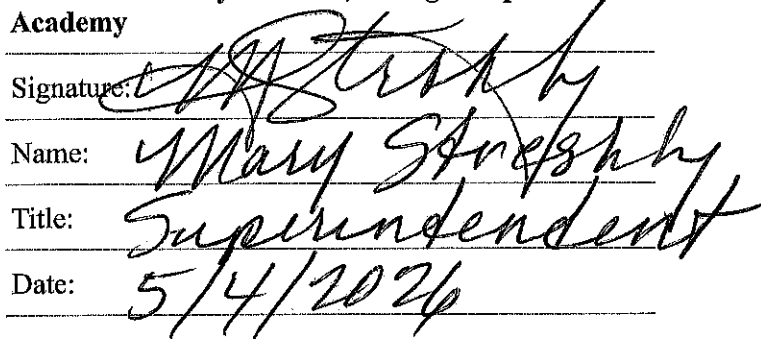 Academy
Signature: M Streshly
Name: Mary Streshly
Title: Superintendent
Date: 5/4/2026